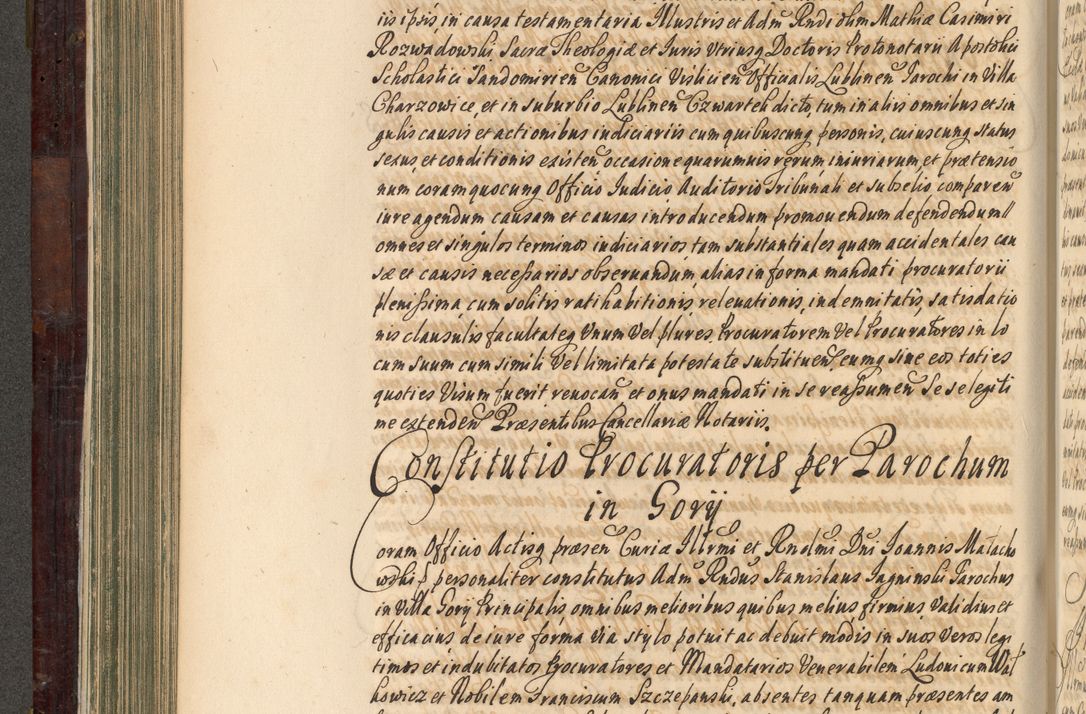 iis ipsis, in causa testamentaria Illustris et Adm Rndi olim Mathiæ Casimiri
Rozwadowski Sacræ Theologiæ et Iuris Utriusq Doctoris Protonotarii Apostolici
Scholastici Sandomirien Canonici Vislicien Officialis Lublinen Parochi in Villa
Charzowice, et in suburbio Lublinen Czwartek dicto, tum in aliis omnibus et sin
gulis causis et actionibus iudiciariis cum quibuscunq personis, cuiuscunq status
sexus, et conditionis existen occasione quarumuis rerum iniuriarum, et prætensio
num coram quocunq Officio Iudicio Auditorio Tribunali et subselio comparen
iure agendum causam et causas introducendum promouendum defendendum
omnes et singulos terminos iudiciarios, tam substantiales quam accidentales cau
sæ et causis necessarios obseruandum, alias in forma mandati procuratorii
plenissima, cum solitis ratihabitionis, releuationis, indemnitatis, satisdatio
nis clausulis facultateq Unum Vel plures, Procuratorem Vel Procuratores in lo
cum suum cum simili Vel limitata potestate substituen, eumq sine eos toties
quoties Visum fuerit reuocan et onus mandati in se reassumen Se se legiti
me extenden Præsentibus Cancellariæ Notariis.
Constitutio Procuratoris per Parochum
in Gorÿ
Coram Officio Actisq præsen Curiæ Illrmi et Rndmi Dni Ioannis Małacho
wski personaliter constitutus Adm Rndus Stanislaus Jagninski Parochus
in Villa Gorÿ Principalis, omnibus melioribus quibus melius firmius Validius et
efficacius de iure forma Via stylo potuit ac debuit modis in suos Veros legi
timos et indubitatos Procuratores et Mandatarios Venerabilem Ludouicum Wal
kowicz et Nobilem Franciscum Szczepanski, absentes tanquam præsentes am